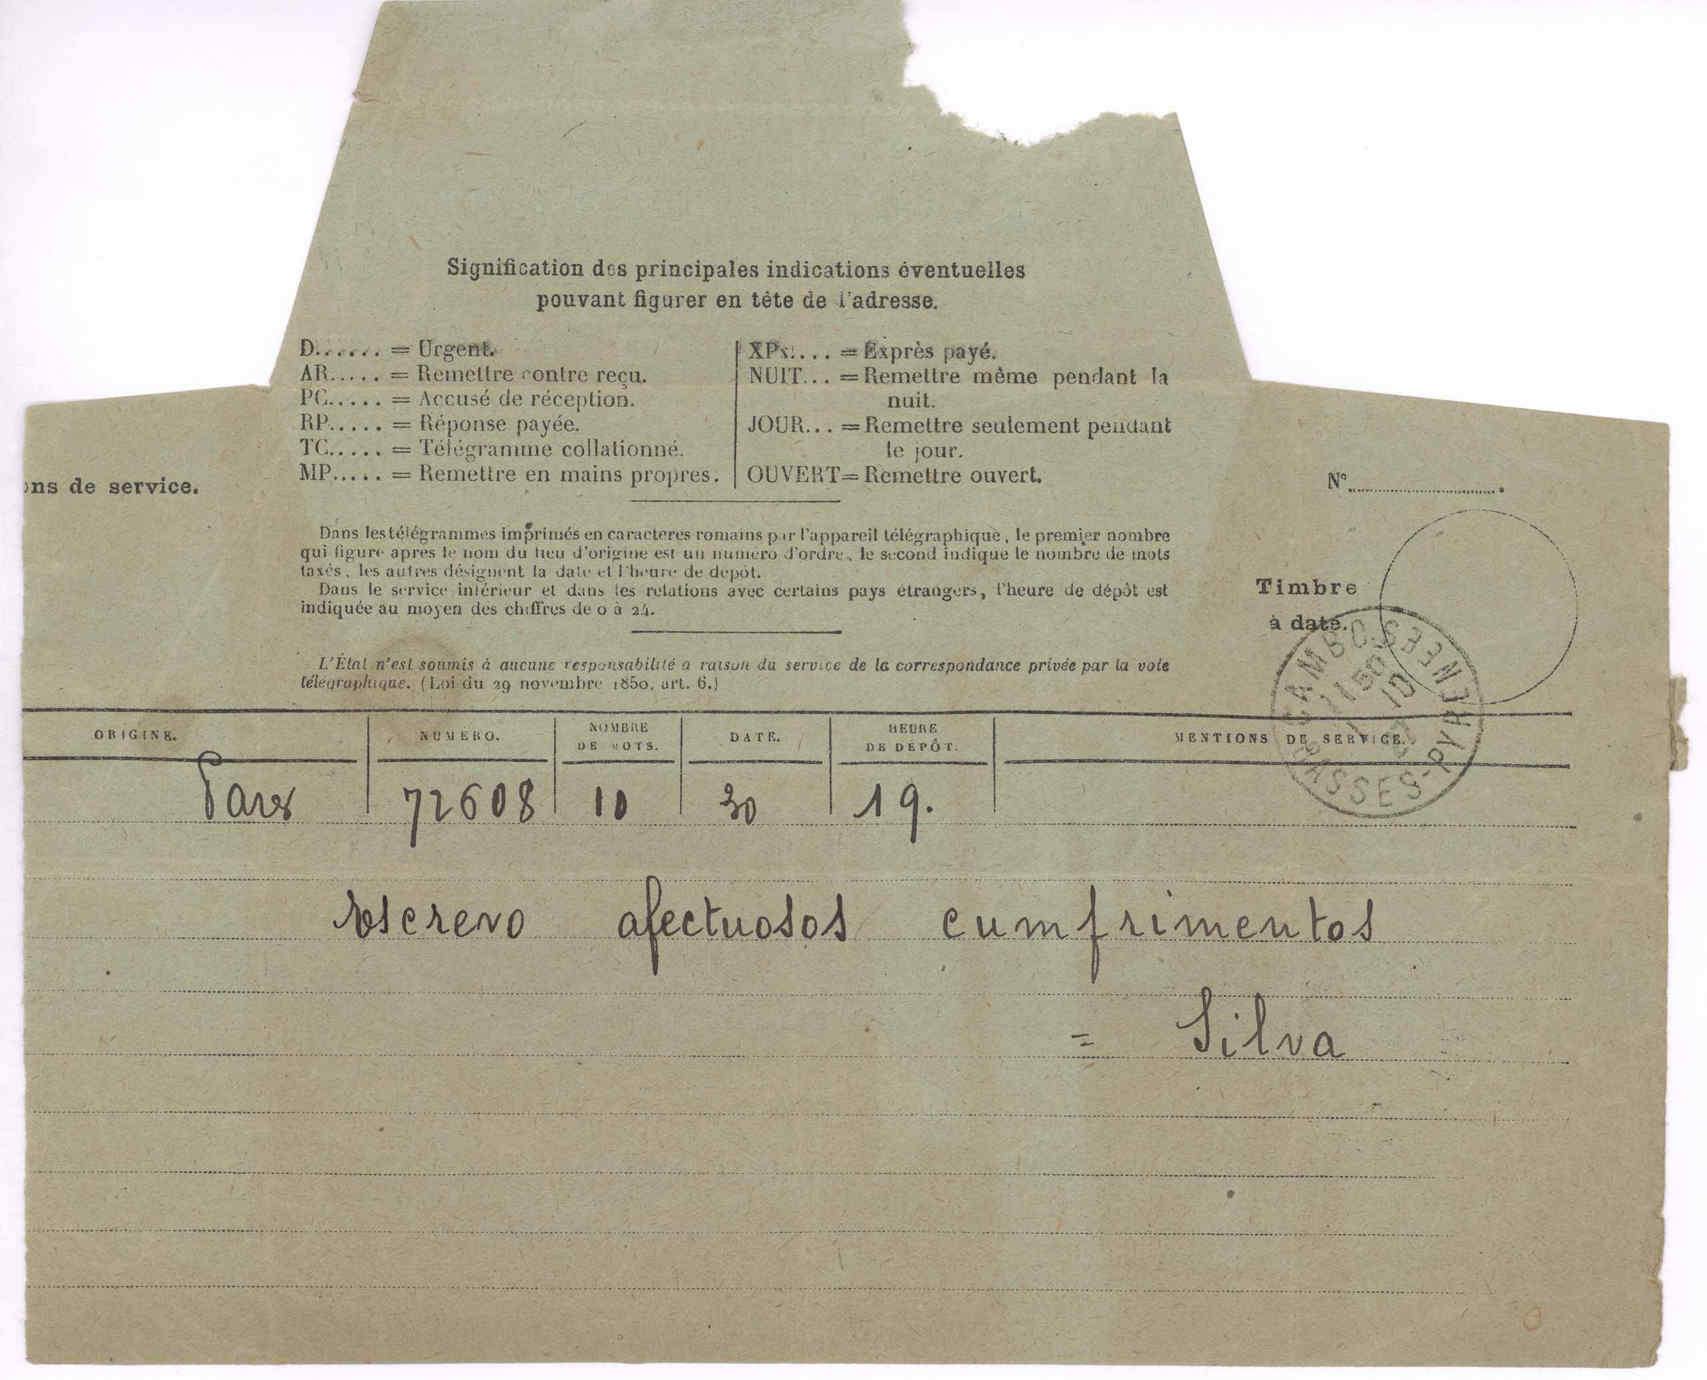 Signification des principales indications éventuelles
pouvant figurer en tête de l'adresse.
D...... = Urgent.
AR..... = Remettre contre reçu.
PC..... = Accusé de réception.
RP..... = Réponse payée.
TC..... = Télégramme collationné.
MP..... = Remettre en mains propres.
XPx.... = Exprès payé.
NUIT... = Remettre même pendant la
nuit.
JOUR... = Remettre seulement pendant
le jour.
OUVERT = Remettre ouvert.
ons de service.
N°
Dans les télégrammes imprimés en caractères romains par l'appareil télégraphique, le premier nombre
qui figure après le nom du lieu d'origine est un numéro d'ordre, le second indique le nombre de mots
taxés, les autres désignent la date et l'heure de dépôt.
Dans le service intérieur et dans les relations avec certains pays étrangers, l'heure de dépôt est
indiquée au moyen des chiffres de 0 à 24.
Timbre
à date.
L'État n'est soumis à aucune responsabilité à raison du service de la correspondance privée par la voie
télégraphique. (Loi du 29 novembre 1850, art. 6.)
CAMBO
BASSES-PYRENEES
ORIGINE. NUMÉRO. NOMBRE DE MOTS. DATE. HEURE DE DÉPÔT. MENTIONS DE SERVICE.
Paris 72608 10 30 19.
Escrevo afectuosos cumfrimentos
= Silva